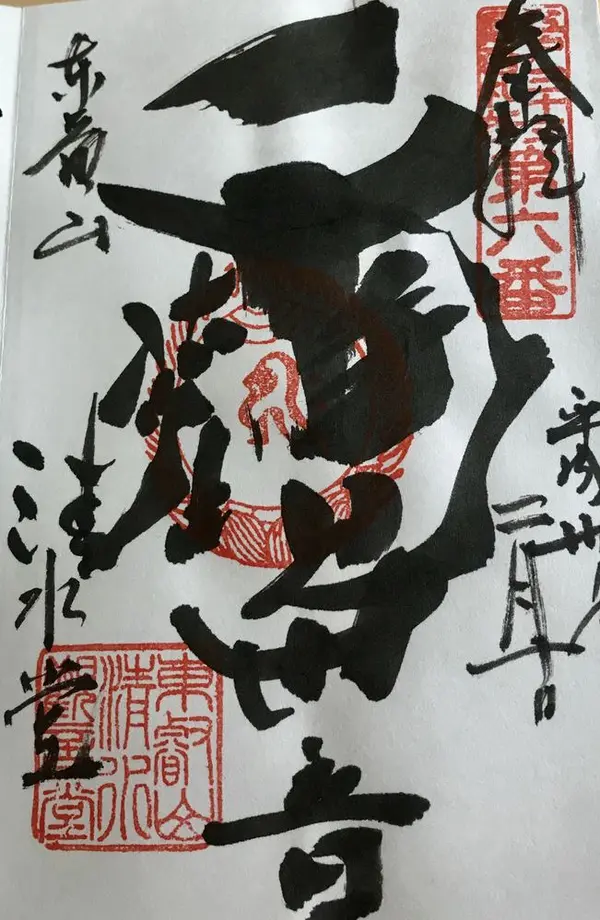 奉拝
第六番
平成卅
二月十日
観世音
東叡山
清水堂
東叡山
清水
観音堂